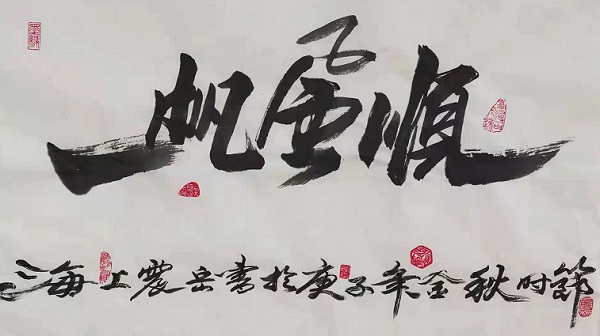 一帆風順
海上震岳書於庚子年金秋时節